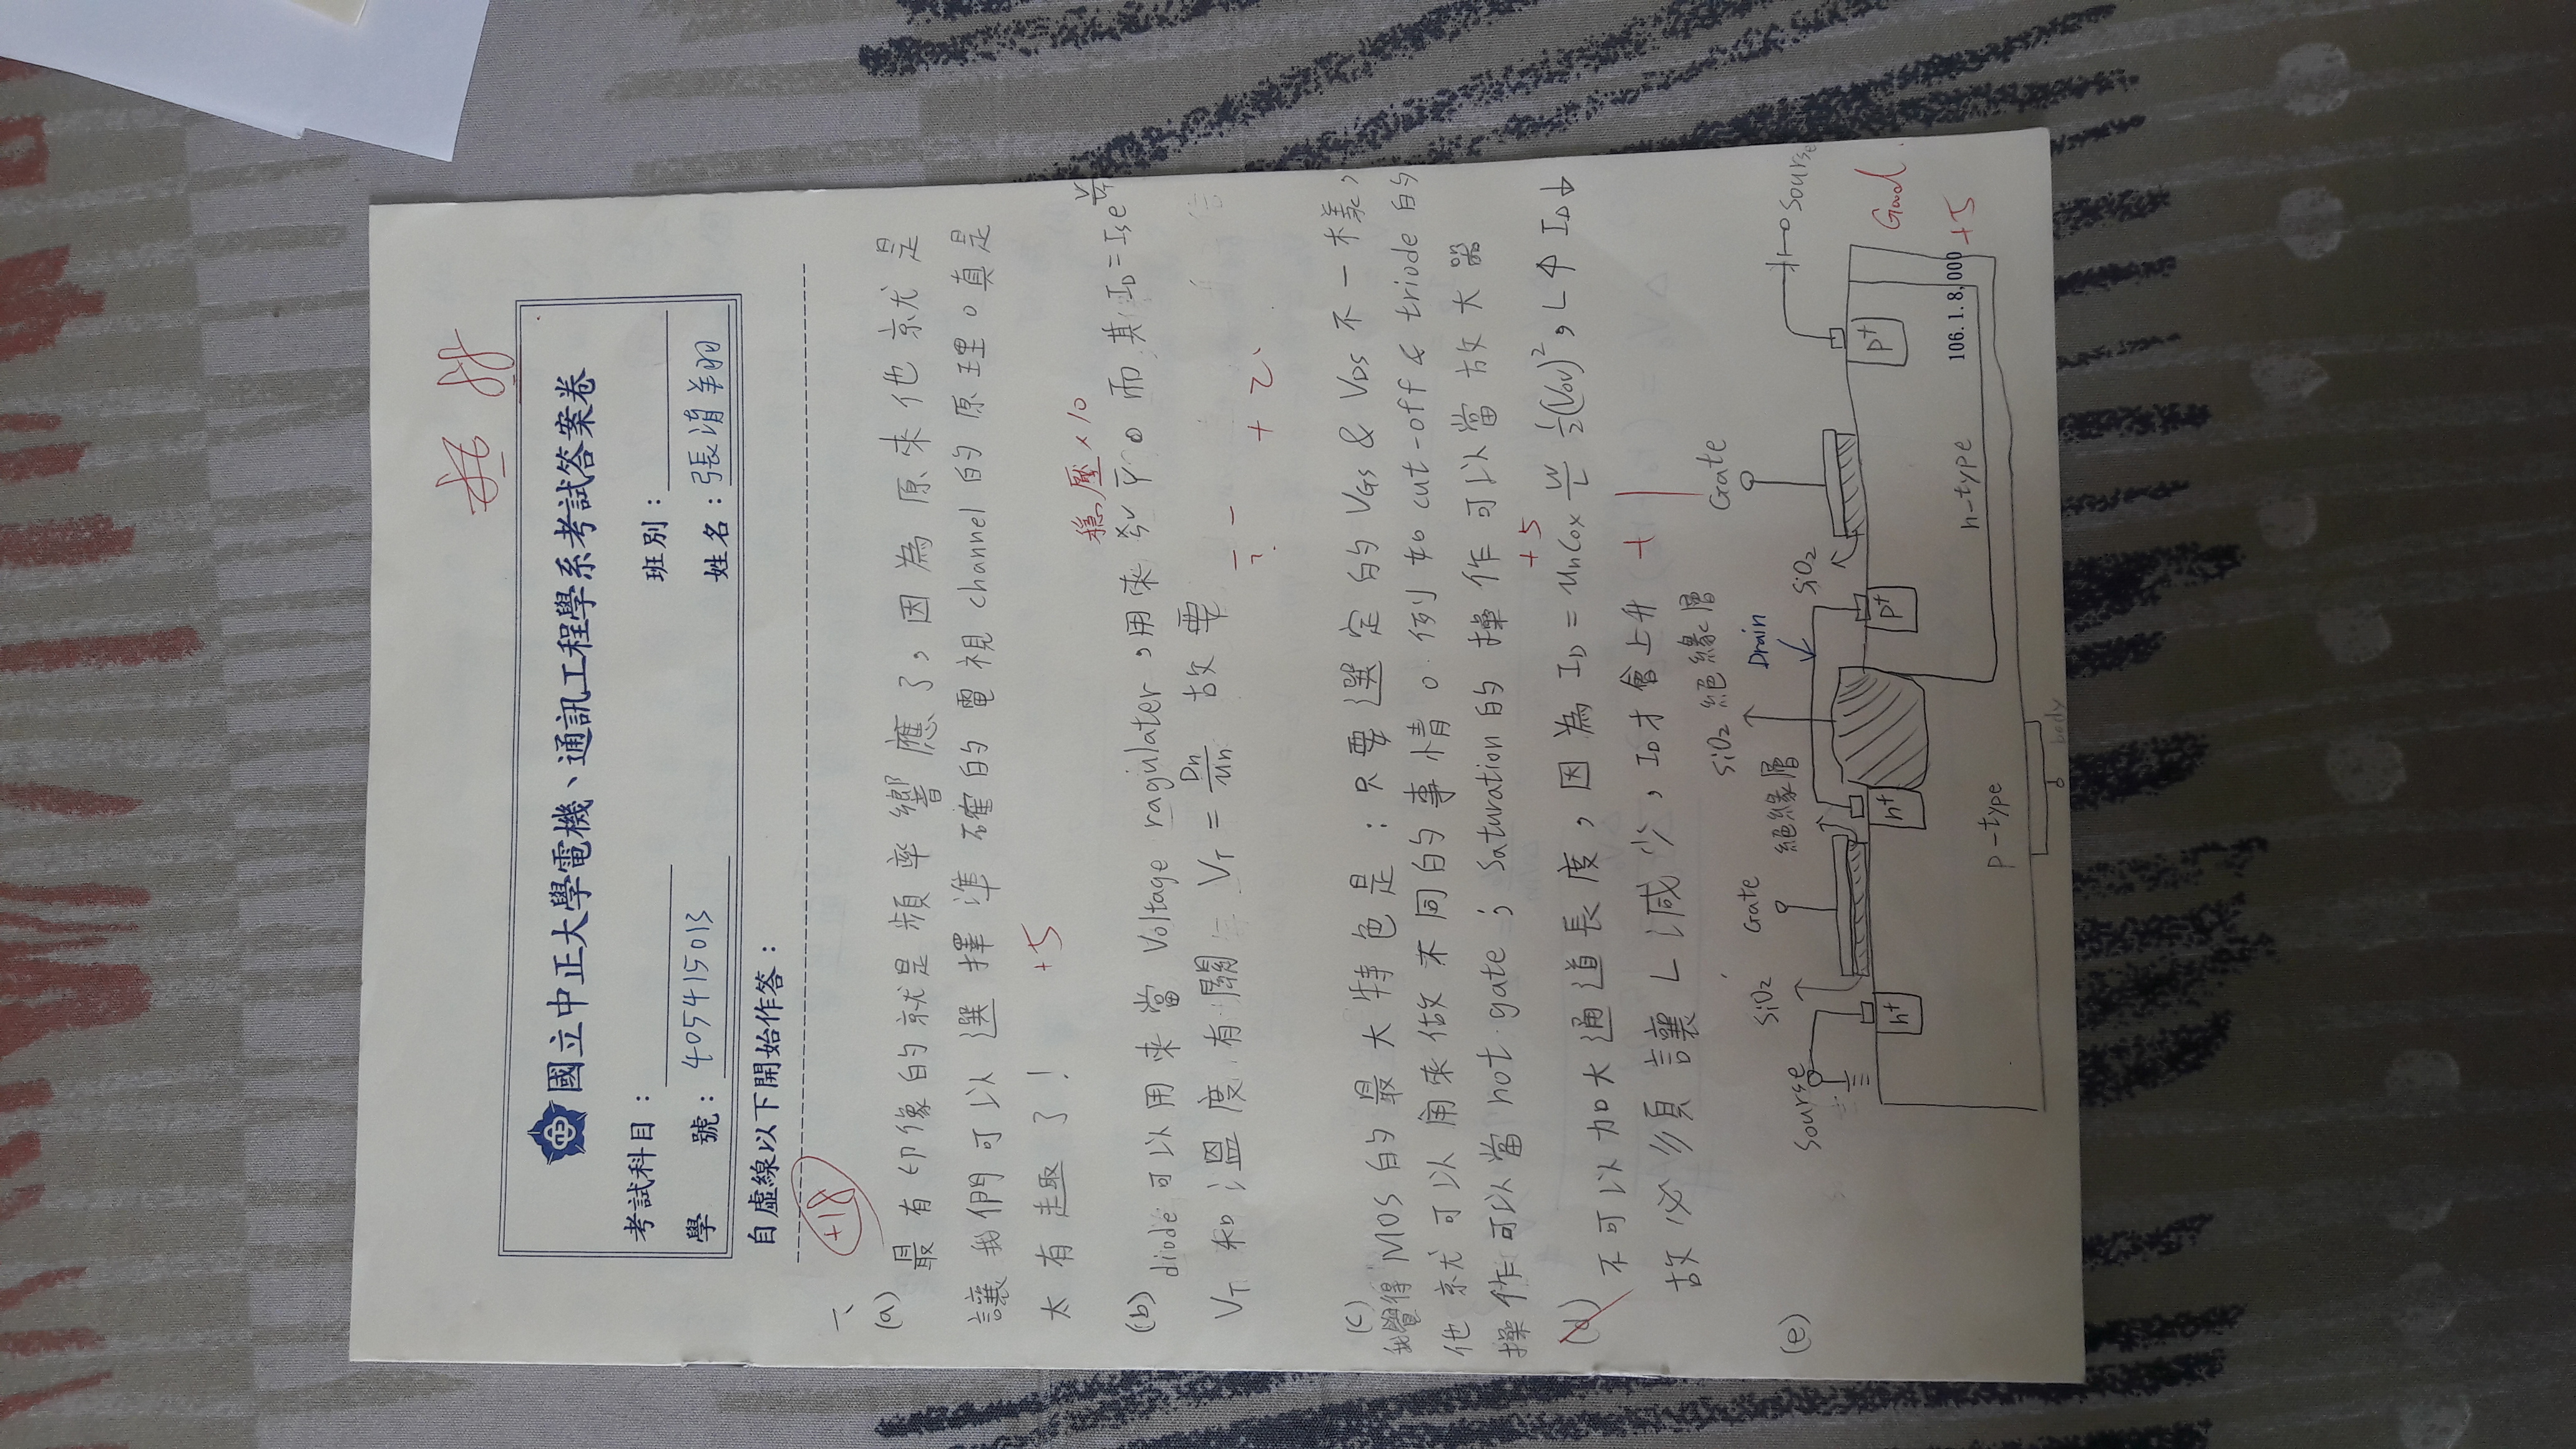 88
國立中正大學電機、通訊工程學系考試答案卷
考試科目：
班別：
學 號：405415013
姓名：張清翔
自虛線以下開始作答：
一、 +18
(a)
最有印像的就是頻率響應了，因為原來他就是
讓我們可以選擇準確的電視channel的原理。真是
太有趣了！ +5
穩壓×10
(b) diode可以用來當 Voltage ragulater，用來 。而其 I_D=I_S e^{V/V_T}
V_T 和溫度有關 V_T = Dn/μn 故要
? +2
(c)
我覺得 MOS的最大特色是：只要選定的 V_GS & V_DS 不一樣，
他就可以用來做不同的事情。例如 cut-off & triode的
操作可以當 not gate；Saturation的操作可以當放大器
+5
(d) 不可以加大通道長度，因為 I_D = μnCox W/L 1/2(Vov)²，L↑ I_D↓
故必須讓L減少，I_D才會上升 +1
SiO2 絕緣層
Gate
(e)
Sourse
SiO2
Gate
絕緣層
Drain
SiO2
Sourse
n+
n+
p+
p+
Good
+5
p-type
n-type
106.1.8,000
body